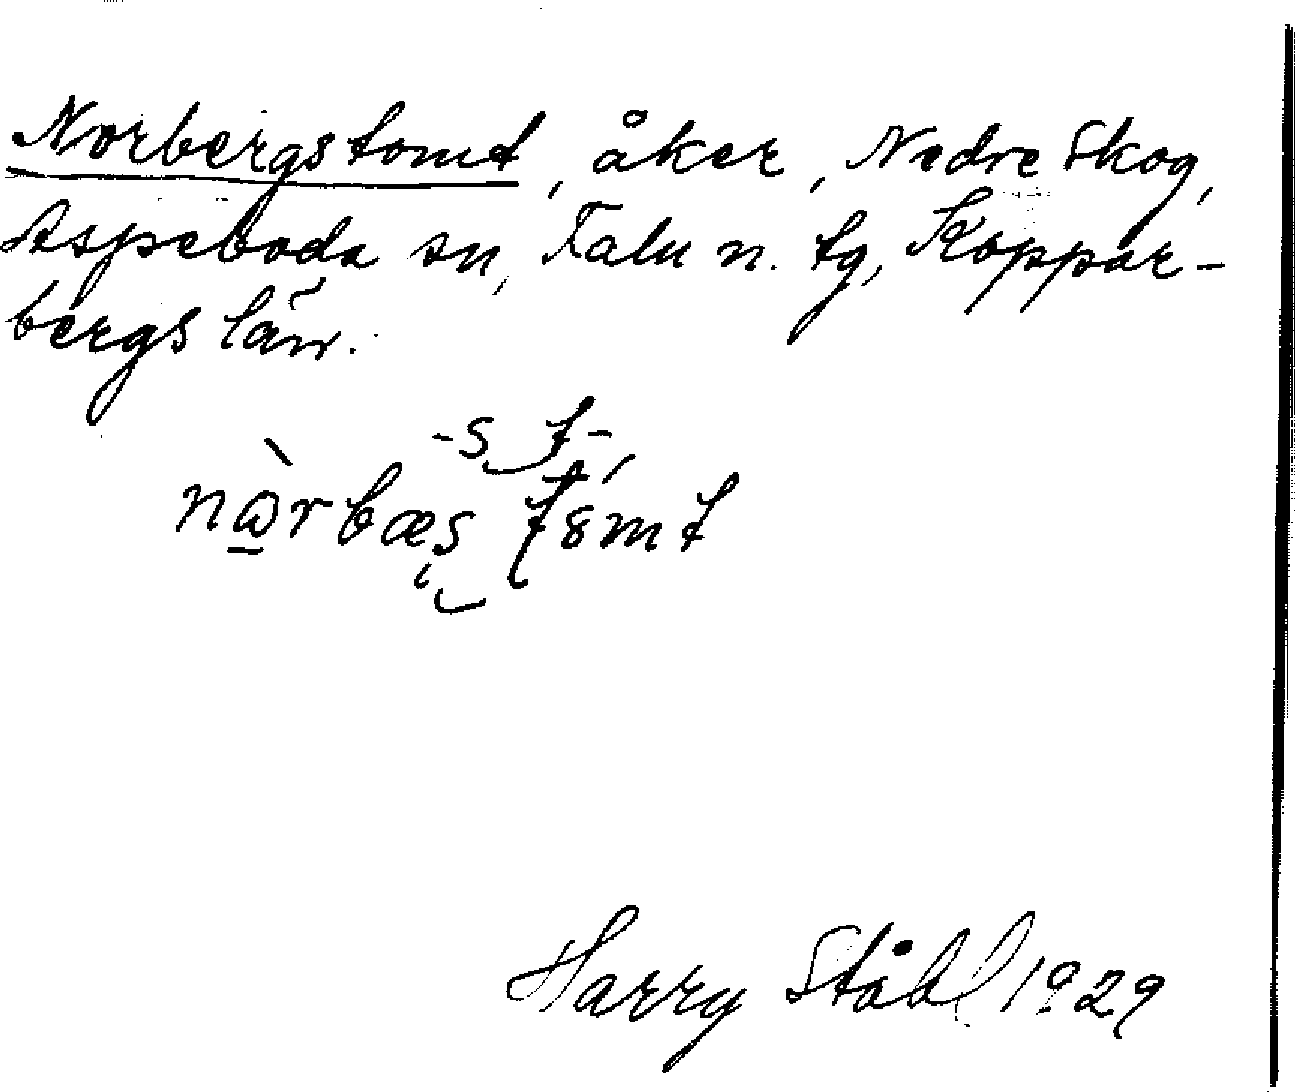 Norbergstomt, åker, Nedre Skog,
Aspeboda sn, Falu n. tg, Koppar-
bergs län.
-s t-
Harry Ståhl 1929